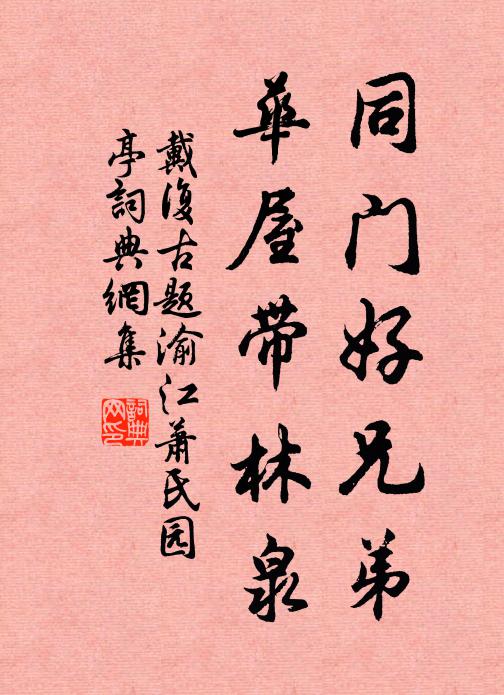 同门好兄弟
華屋带林泉
戴復古题渝江萧民园
亭詞典網集
詞典網印